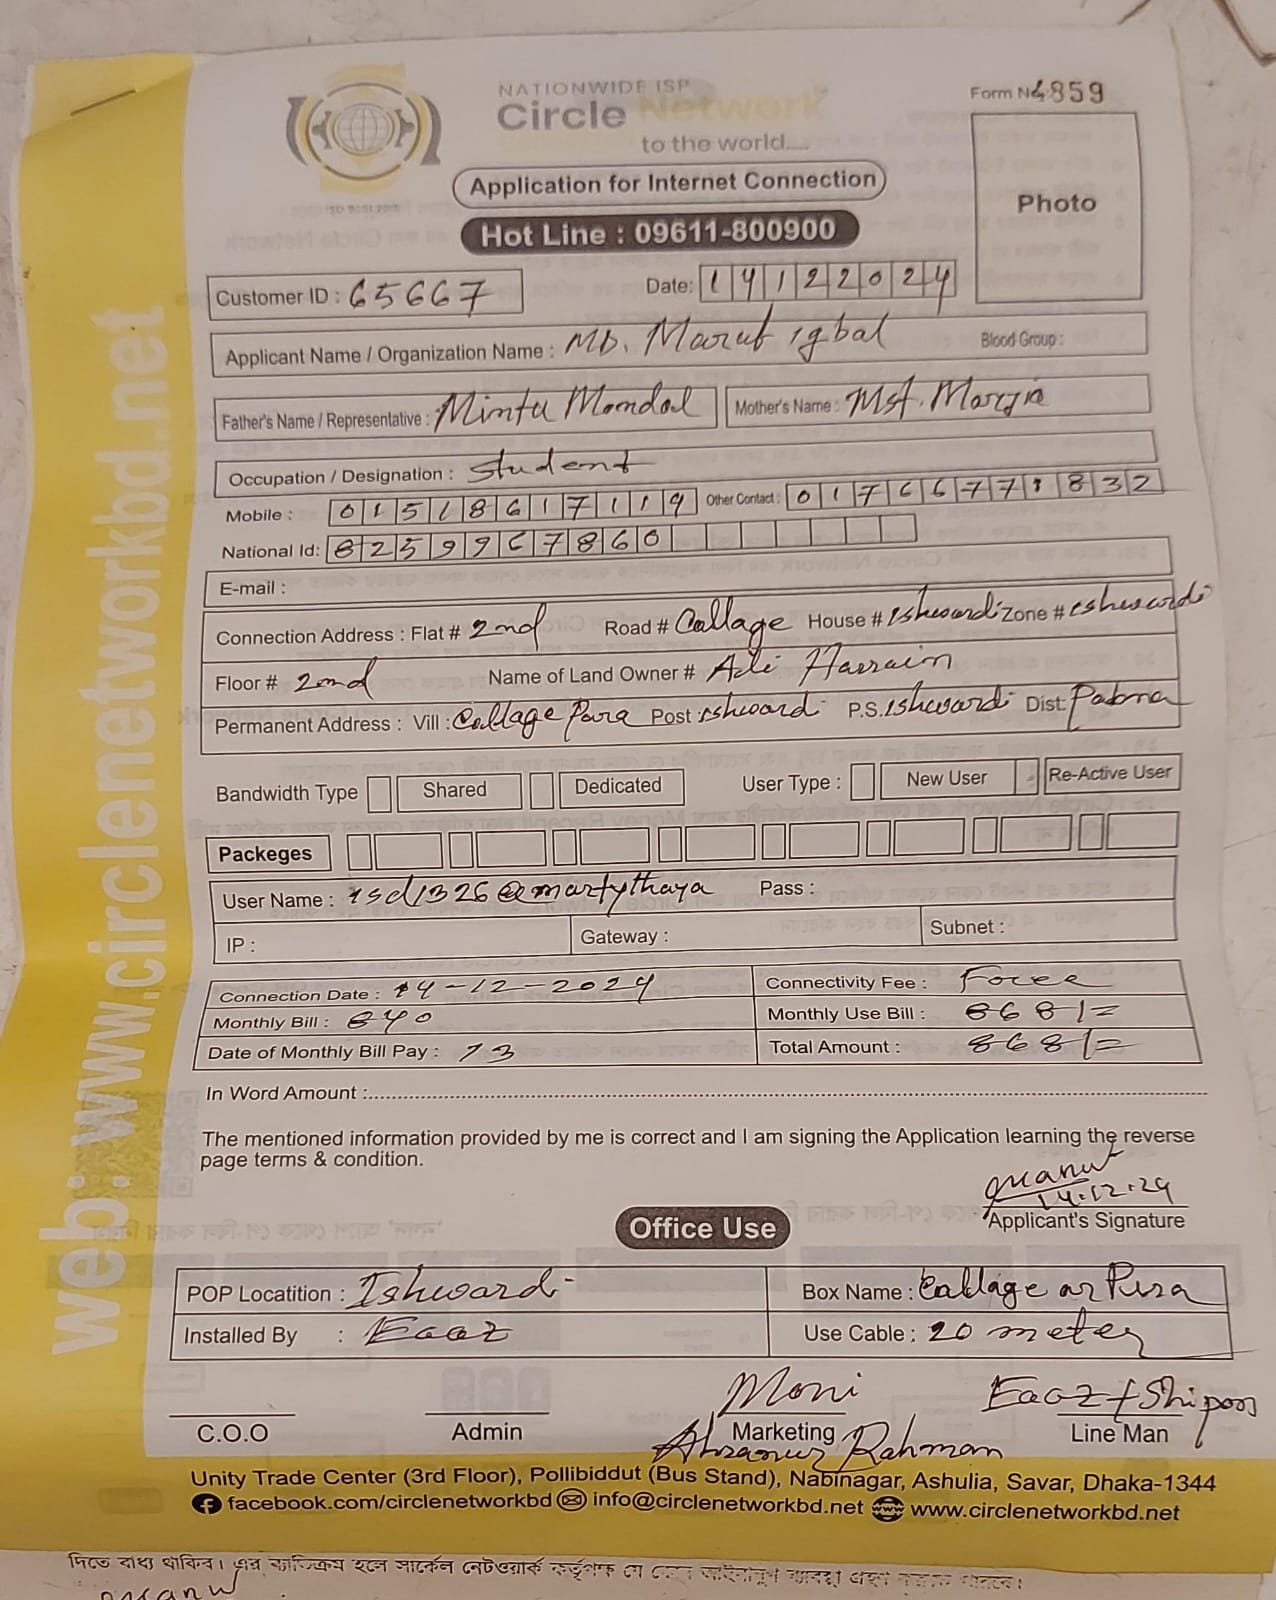 NATIONWIDE ISP
Circle Network
to the world....
Form No 4859
Application for Internet Connection
Hot Line : 09611-800900
Photo
ISO 9001:2015
Customer ID : 65667
Date: 14122024
Applicant Name / Organization Name : MD. Maruf iqbal Blood Group :
Father's Name / Representative : Mintu Mondal Mother's Name : Mst. Marjia
Occupation / Designation : Student
Mobile : 01518617119 Other Contact : 01766771832
National Id: 8259967860
E-mail :
Connection Address : Flat # 2nd Road # Collage House # ishwardi Zone # eshwardi
Floor # 2nd Name of Land Owner # Ali Hassain
Permanent Address : Vill : Collage Para Post : ishwardi P.S. ishwardi Dist: Pabna
Bandwidth Type Shared Dedicated User Type : New User Re-Active User
Packeges
User Name : isd1326@martythaya Pass :
IP : Gateway : Subnet :
Connection Date : 14-12-2024 Connectivity Fee : Free
Monthly Bill : 840 Monthly Use Bill : 868/=
Date of Monthly Bill Pay : 13 Total Amount : 868/=
In Word Amount :
The mentioned information provided by me is correct and I am signing the Application learning the reverse
page terms & condition.
Maruf
14.12.24
Applicant's Signature
Office Use
POP Locatition : Ishwardi Box Name : Collage Para
Installed By : Eaaz Use Cable : 20 meter
Moni Eaaz + Shipon
C.O.O Admin Marketing Line Man
Ahsanur Rahman
Unity Trade Center (3rd Floor), Pollibiddut (Bus Stand), Nabinagar, Ashulia, Savar, Dhaka-1344
facebook.com/circlenetworkbd info@circlenetworkbd.net www.circlenetworkbd.net
web: www.circlenetworkbd.net
দিতে বাধ্য থাকিব। এর ব্যতিক্রম হলে সার্কেল নেটওয়ার্ক কর্তৃপক্ষ যে কোন আইনানুগ ব্যবস্থা গ্রহণ করতে পারবে।